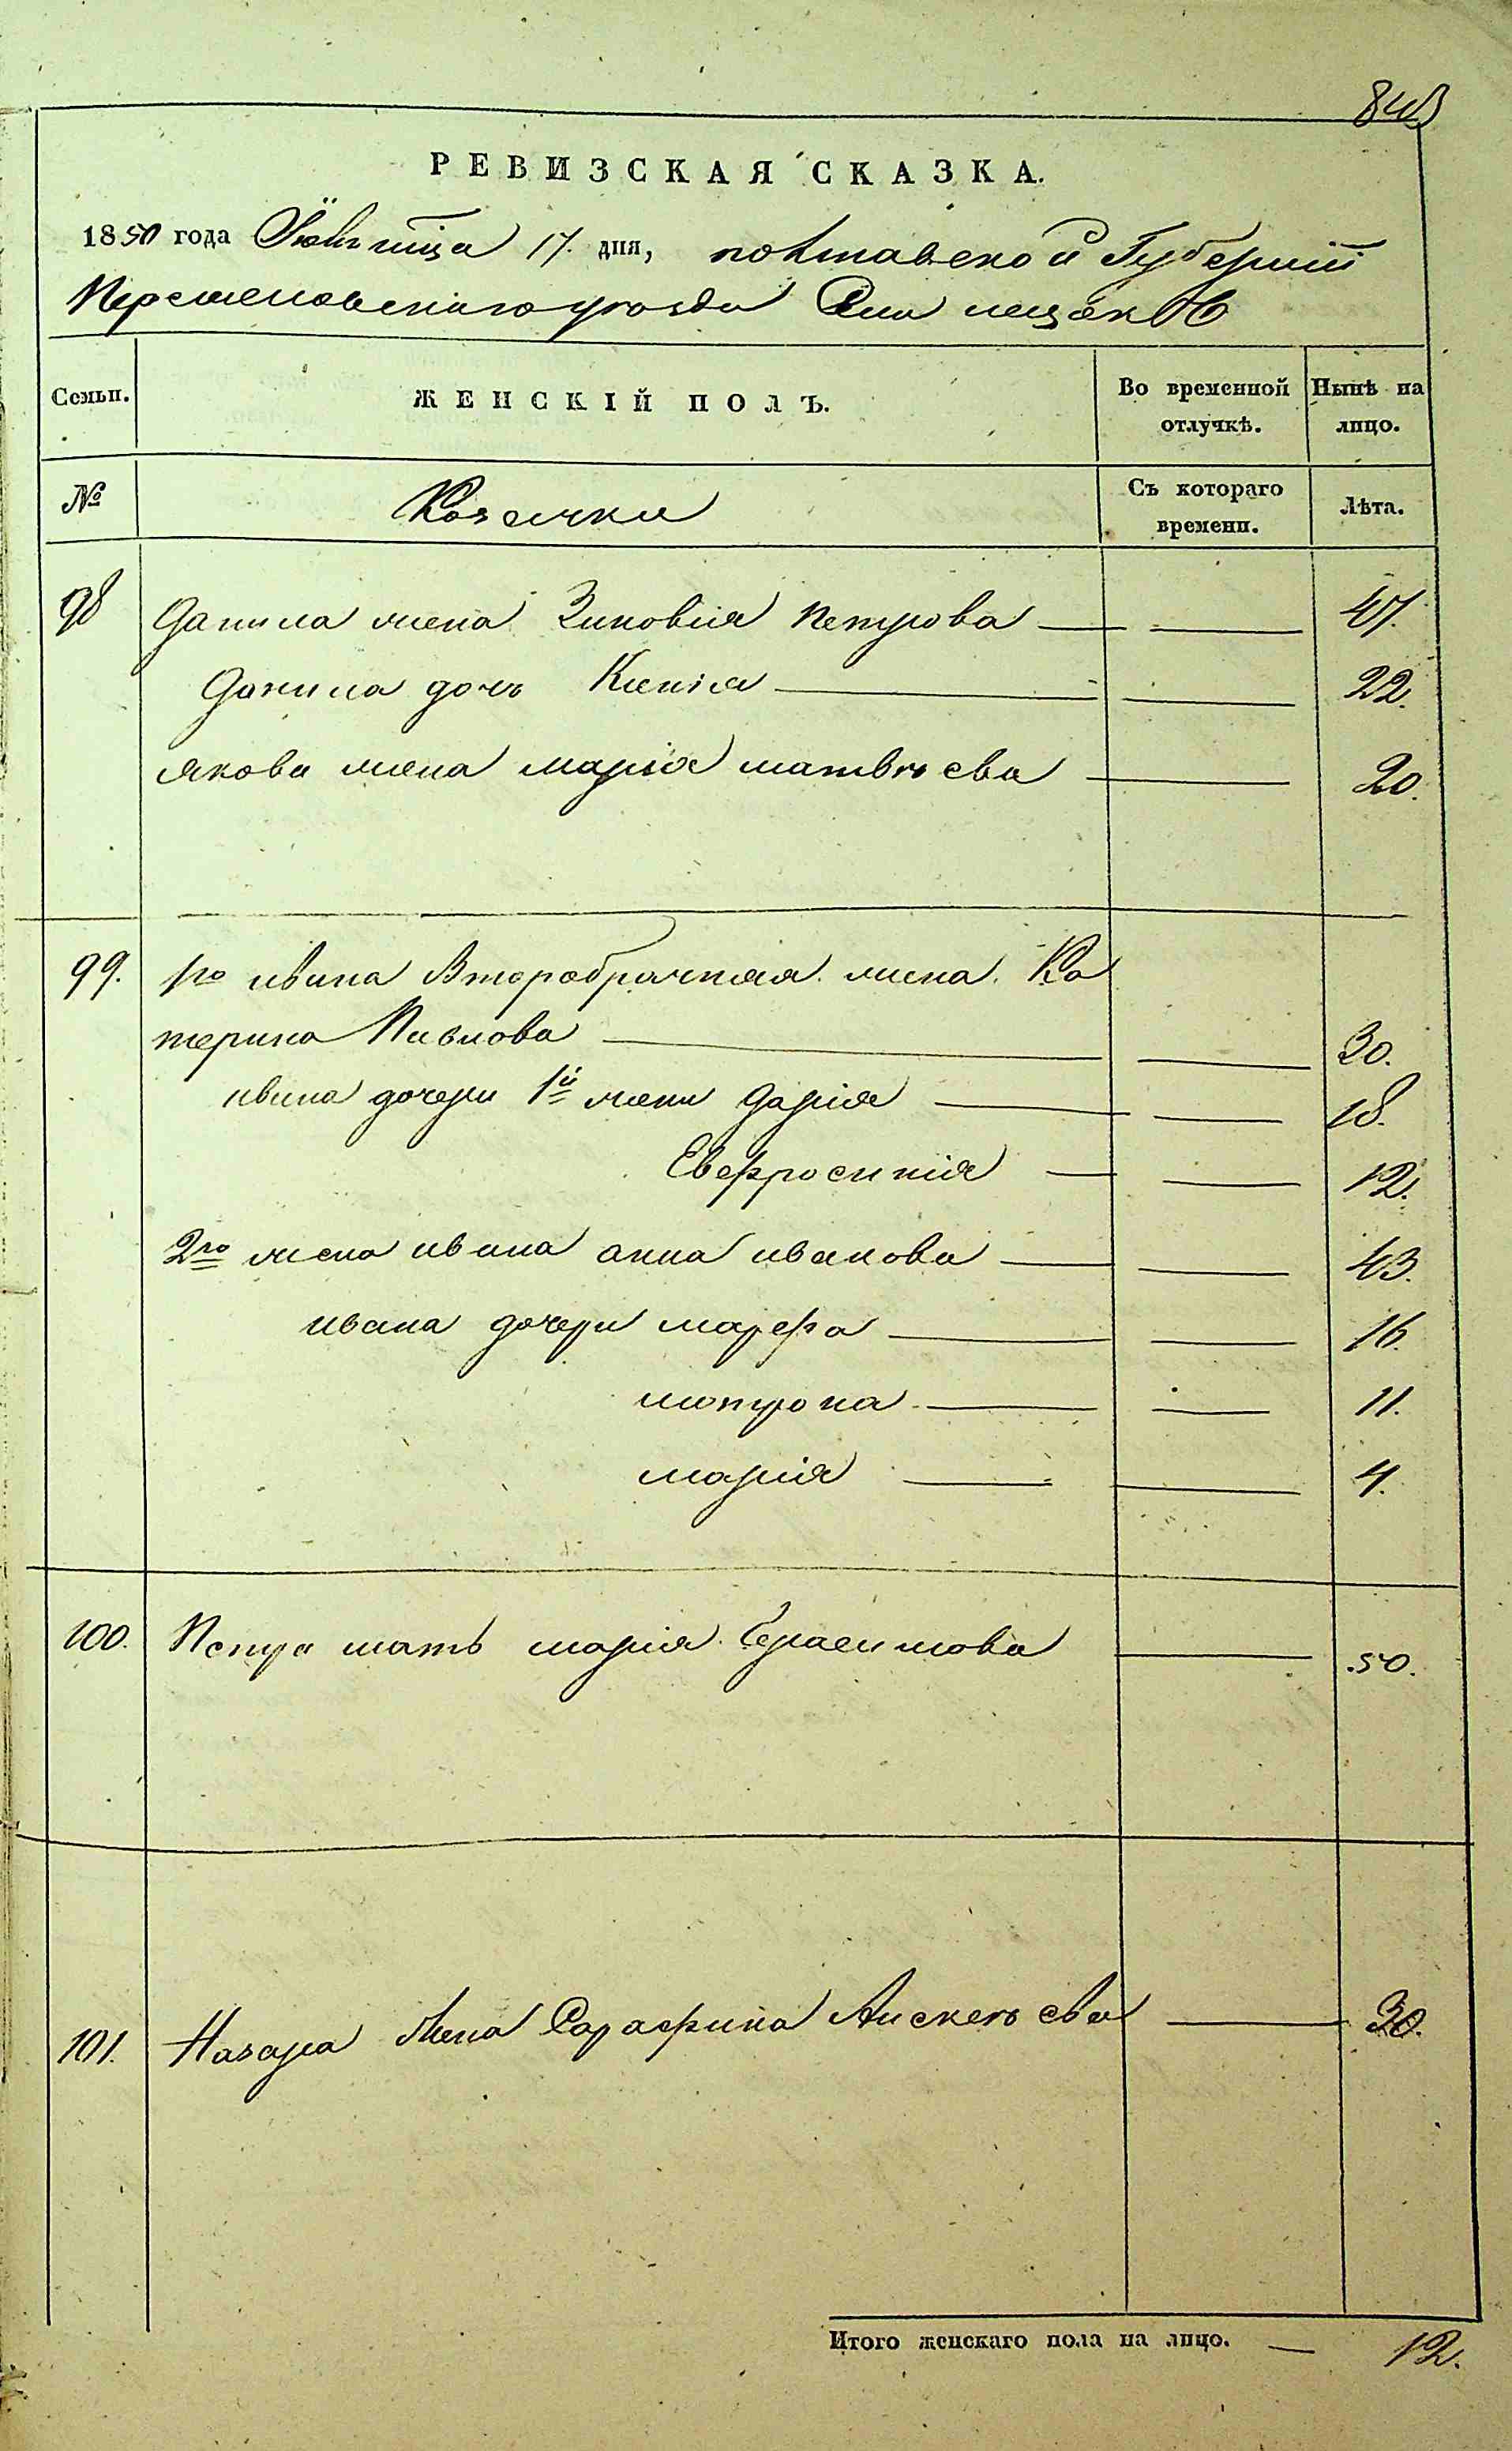 843
РЕВИЗСКАЯ СКАЗКА.
1850 года Юля мца 17. дня, полтавской Губернiи
уезда Села
Семьи.
ЖЕНСКIЙ ПОЛЪ.
Во временной отлучкѣ.
Нынѣ на лицо.
№
Козачки
Съ котораго времени.
Лѣта.
98 Данила жена Зиновiя Петрова — — 47.
Данила дочь Ксенiя — — 22.
якова жена марiя матвѣева — 20.
99. 1го ивана Второбрачная жена Ка
терина Павлова — — 30.
ивана дочери 1й жены Дарiя — — 18.
Евфросинiя — — 12.
2го жена ивана анна иванова — — 43.
ивана дочери марфа — — 16.
мотрона — — 11.
марiя — — 4.
100. Петра мать марiя Герасимова — 50.
101. Назара Жена Сарафина Алексѣева — 30.
Итого женскаго пола на лицо. — 12.